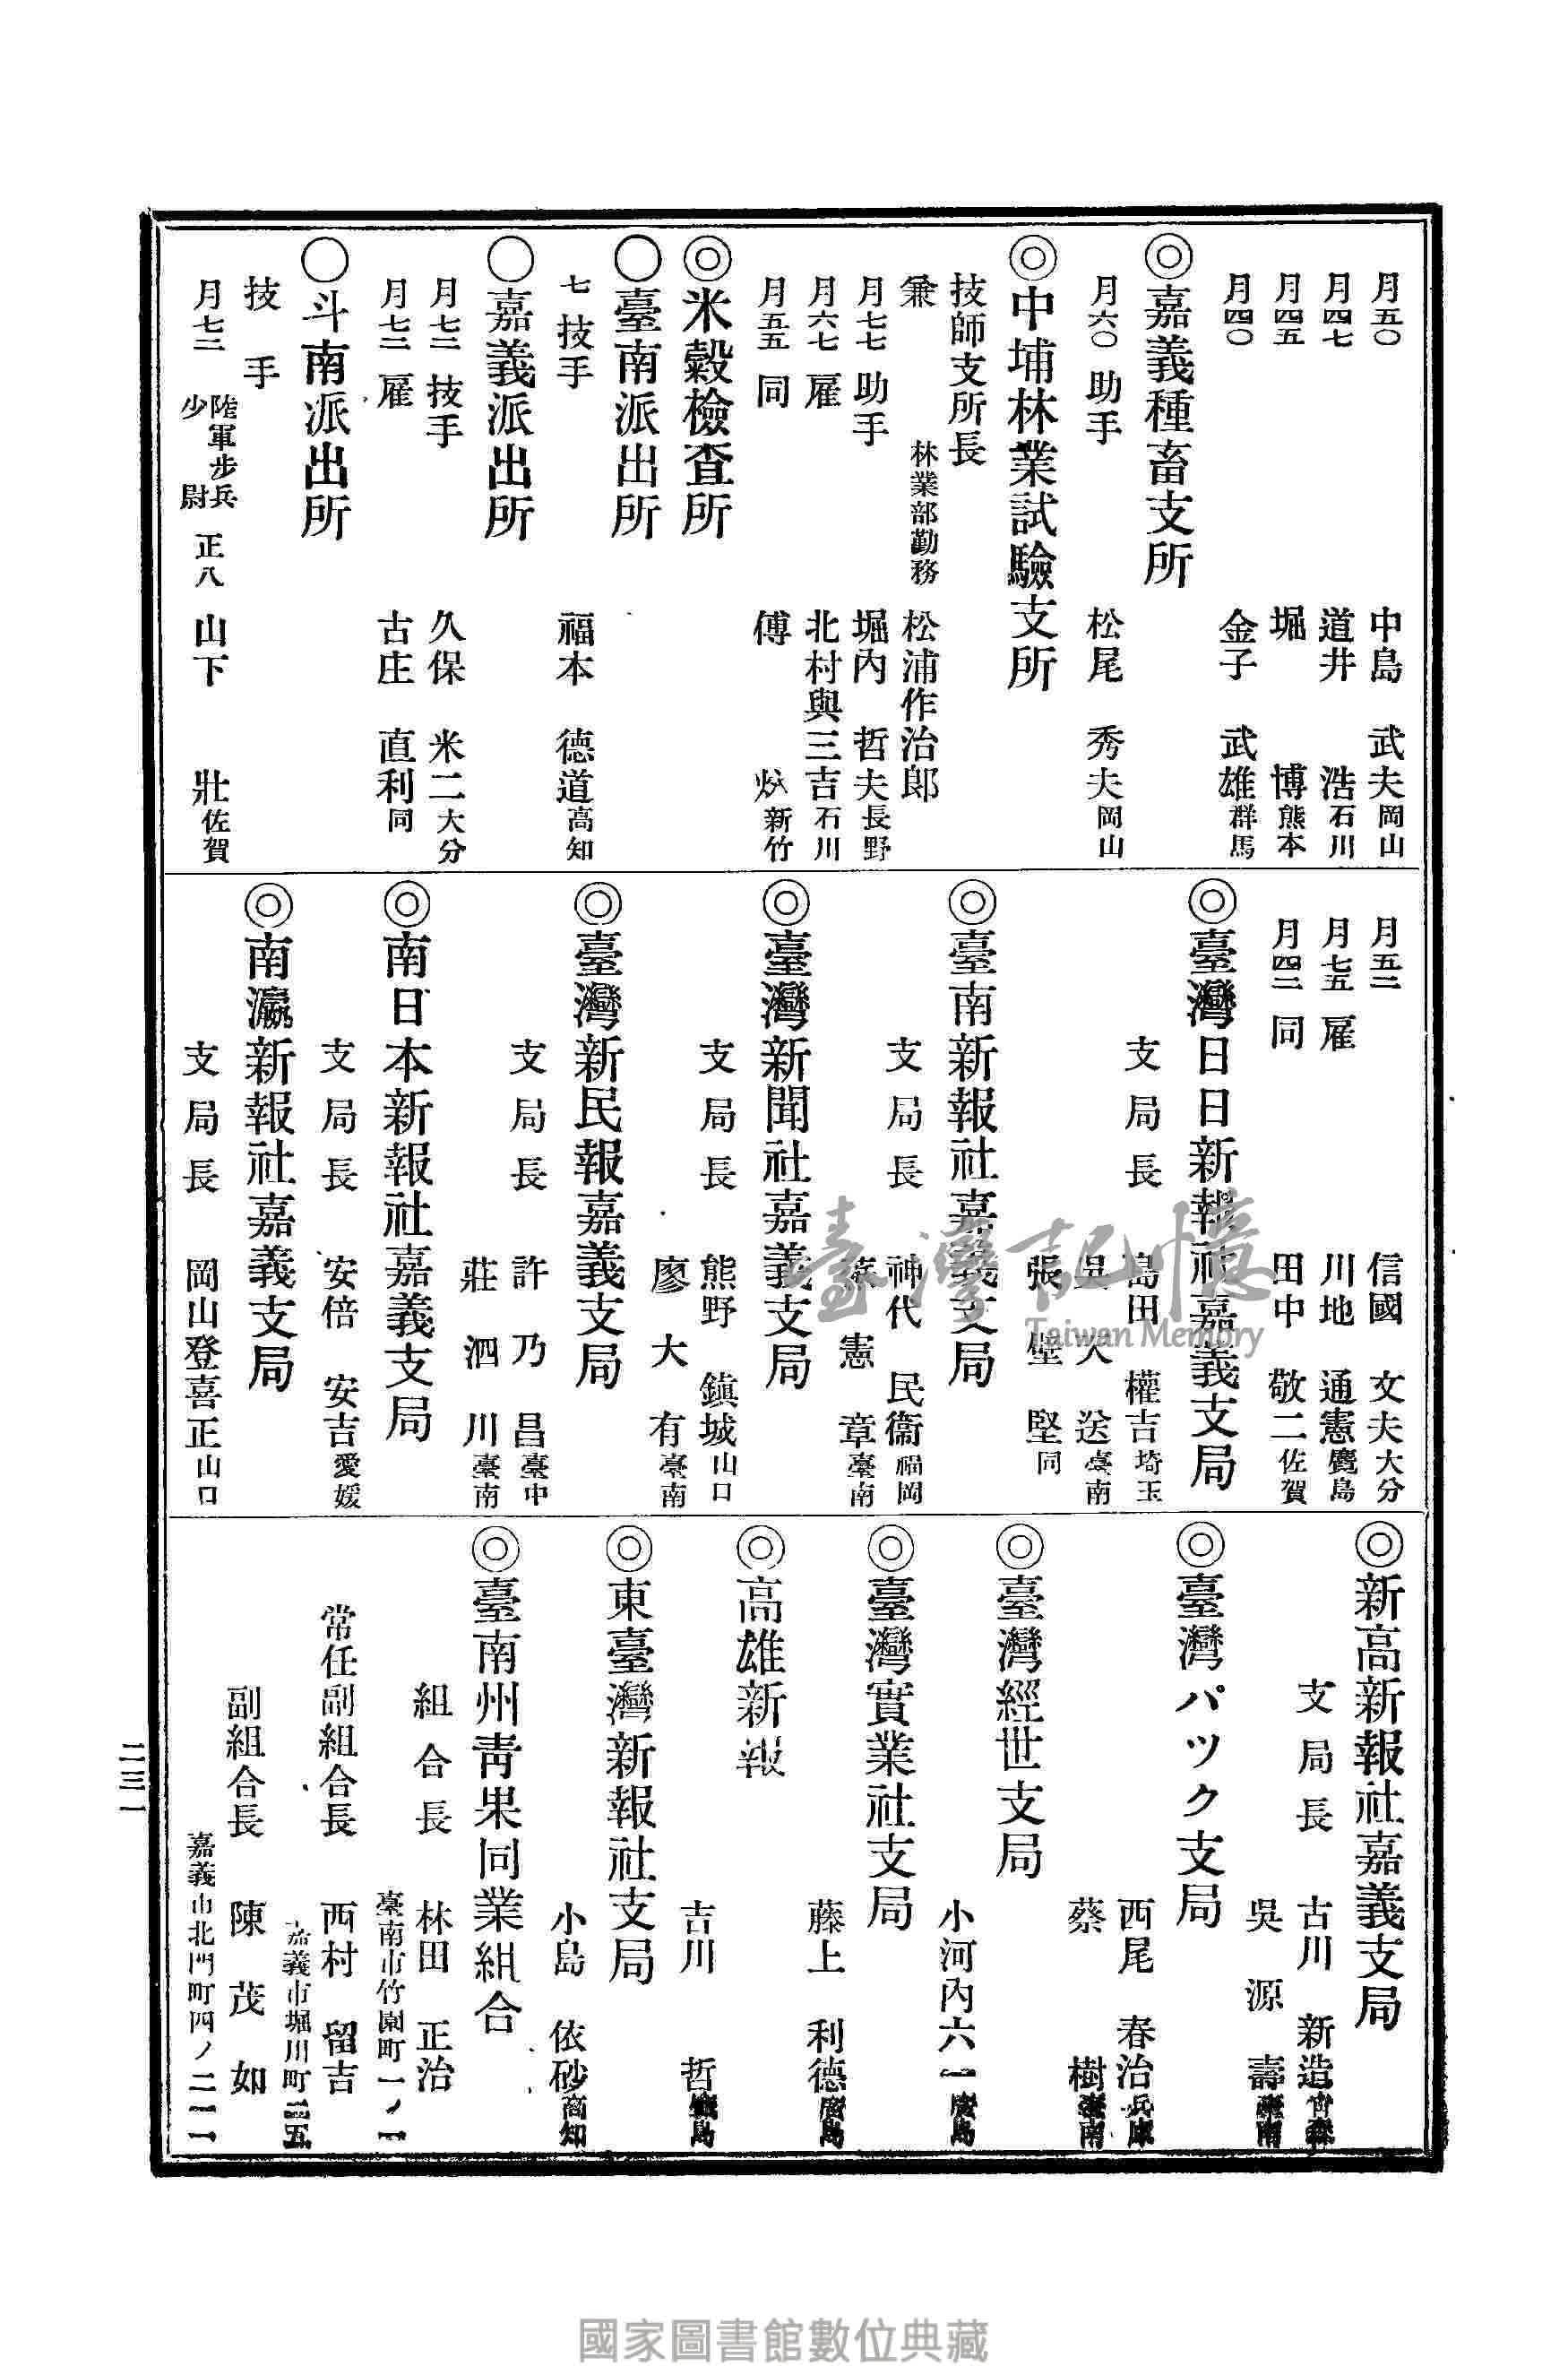 月五〇 中島 武夫 岡山
月四七 道井 浩 石川
月四五 堀 博 熊本
月四〇 金子 武雄 群馬
◎嘉義種畜支所
月六〇 助手 松尾 秀夫 岡山
◎中埔林業試驗支所
技師支所長
兼 林業部勤務 松浦作治郎
月七七 助手 堀内 哲夫 長野
月六七 雇 北村與三吉 石川
月五五 同 傅 新竹
◎米穀檢査所
〇臺南派出所
七 技手 福本 德道 高知
〇嘉義派出所
月七二 技手 久保 米二 大分
月七二 雇 古庄 直利 同
〇斗南派出所
技手
月七二 陸軍步兵少尉 正八 山下 壯 佐賀
月五二 信國 文夫 大分
月七五 雇 川地 通憲 鹿島
月四二 同 田中 敬二 佐賀
◎臺灣日日新報社嘉義支局
支局長 島田 權吉 埼玉
吳 送 臺南
張 堅 同
◎臺南新報社嘉義支局
支局長 神代 民衞 福岡
蔡 憲章 臺南
◎臺灣新聞社嘉義支局
支局長 熊野 鎭城 山口
廖大有 臺南
◎臺灣新民報嘉義支局
支局長 許乃昌 臺中
莊泗川 臺南
◎南日本新報社嘉義支局
支局長 安倍 安吉 愛媛
◎南瀛新報社嘉義支局
支局長 岡山登喜正 山口
◎新高新報社嘉義支局
支局長 古川 新造 靑森
吳源壽 臺南
◎臺灣パツク支局
西尾 春治 兵庫
蔡樹 臺南
◎臺灣經世支局
小河內六一 廣島
◎臺灣實業社支局
藤上 利德 廣島
◎高雄新報
吉川 哲 廣島
◎東臺灣新報社支局
小島 依砂 高知
◎臺南州靑果同業組合
組合長 林田 正治
臺南市竹園町一ノ一
常任副組合長 西村 留吉
嘉義市堀川町二五
副組合長 陳茂如
嘉義市北門町四ノ二一一
二三一
臺灣記憶
Taiwan Memory
國家圖書館數位典藏